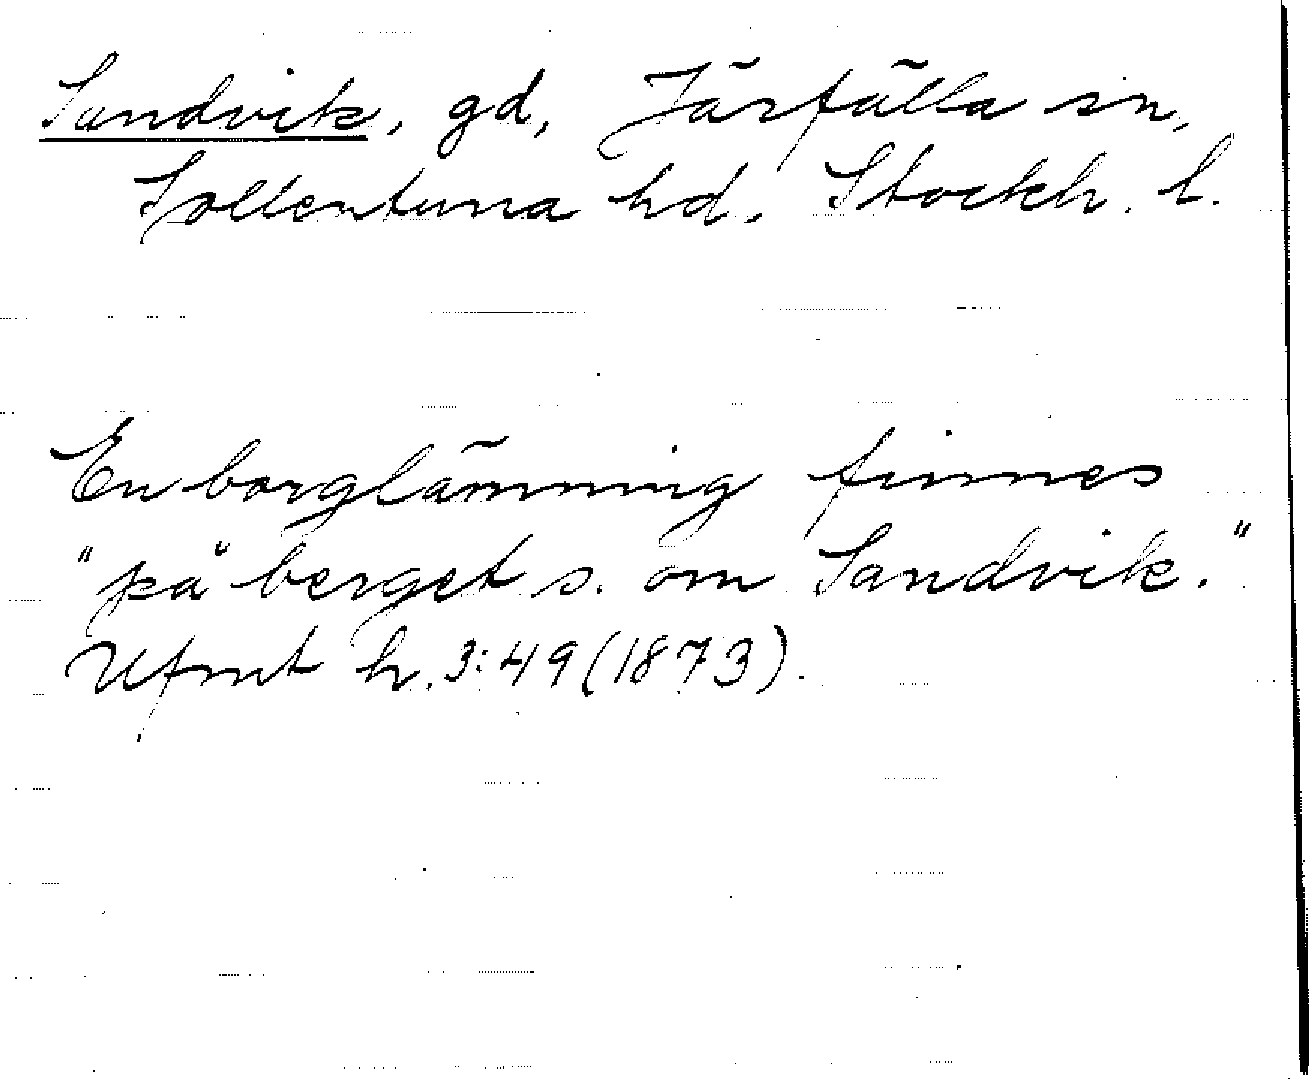 Sandvik, gd, Järfälla sn,
Sollentuna hd. Stockh. l.
En borglämning finnes
"på berget s. om Sandvik."
Ufmt h. 3:49 (1873).